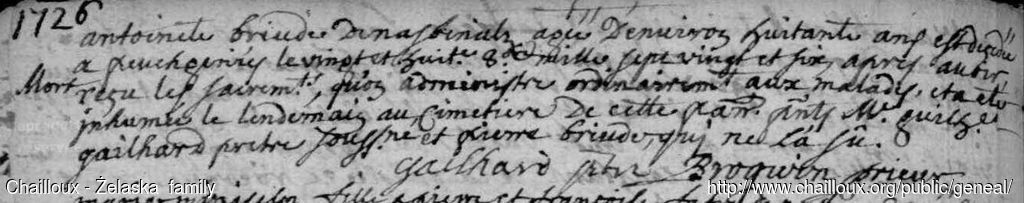 1726
antoinete brieude de nasbinals agée denviron huitante ans est décédée
a le vingt et huit.e 8.bre mille sept vingt et six, apres avoir
Mort reçu les sacrem.ts, qu'on administre ordinairem.t aux malades, et a eté
inhumée le lendemain au Cimetiere de cette parr. pnts M.e
gailhard pretre souss.ne et pierre brieude, qui ne la sû.
gailhard ptre Brogwin prieur
fille a pierre et françoise
Chailloux - Želaska family
http://www.chailloux.org/public/geneal/